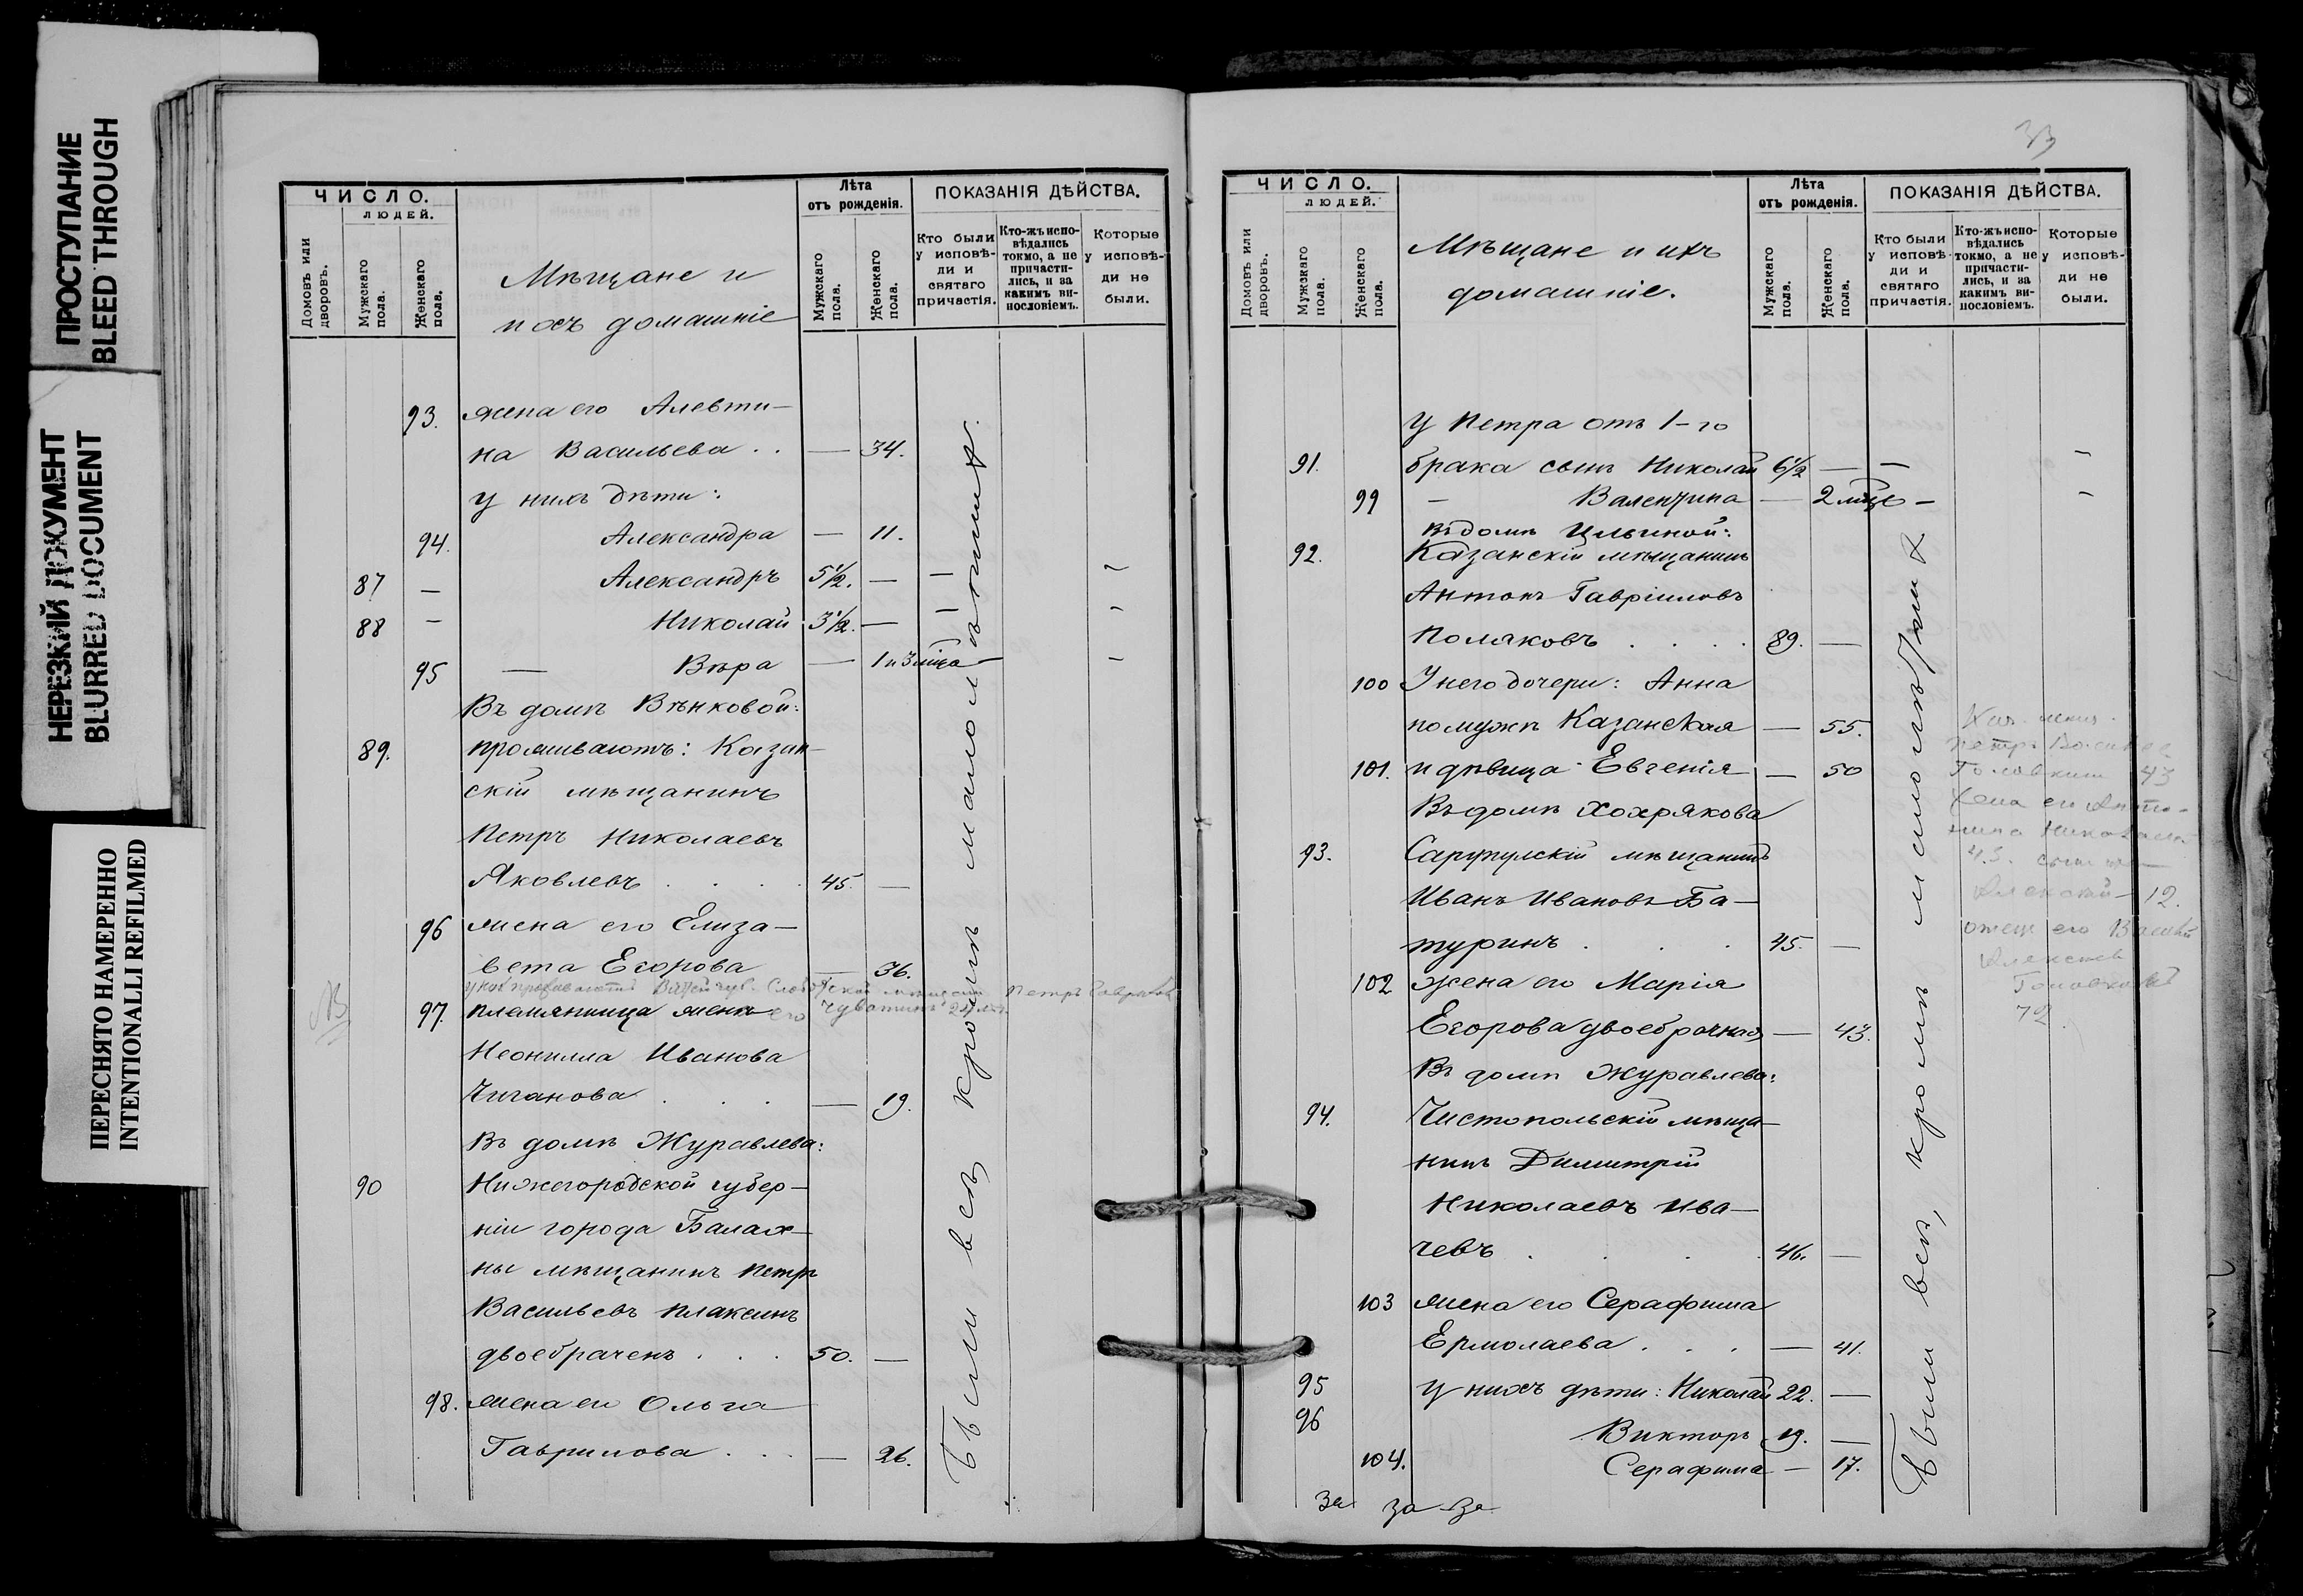 ПРОСТУПАНИЕ
BLEED THROUGH
НЕРЕЗКИЙ ДОКУМЕНТ
BLURRED DOCUMENT
ПЕРЕСНЯТО НАМЕРЕННО
INTENTIONALLI REFILMED
ЧИСЛО.
ЛЮДЕЙ.
Домовъ или дворовъ.
Мужскаго пола.
Женскаго пола.
Мѣщане и
ихъ домашніе
Лѣта
отъ рожденія.
Мужскаго пола.
Женскаго пола.
ПОКАЗАНІЯ ДѢЙСТВА.
Кто были у исповѣди и святаго причастія.
Кто-жъ исповѣдались токмо, а не причастились, и за какимъ винословіемъ.
Которые у исповѣди не были.
93. жена его Алевти-
на Васильева . . — 34.
у нихъ дѣти:
94. Александра — 11.
87 — Александръ 5½. — — —
88 — Николай 3½. — — —
95 — Вѣра — 1 и 3 мѣся —
Въ домѣ Вѣнковой:
89. проживаютъ: Казан-
скій мѣщанинъ
Петръ Николаевъ
Яковлевъ . . . . 45. —
96 жена его Елиза-
вета Егорова — 36.
97. племянница жены его
Неонилла Иванова
Чиганова . . . — 19.
Въ домѣ Журавлева:
90 Нижегородской губер-
ніи города Балах-
ны мѣщанинъ Петръ
Васильевъ Плаксинъ
двоебраченъ . . . 50. —
98. жена его Ольга
Гаврилова . . . — 26.
Были всѣ, кромѣ малолѣтнихъ.
33
ЧИСЛО.
ЛЮДЕЙ.
Домовъ или дворовъ.
Мужскаго пола.
Женскаго пола.
Мѣщане и ихъ
домашніе.
Лѣта
отъ рожденія.
Мужскаго пола.
Женскаго пола.
ПОКАЗАНІЯ ДѢЙСТВА.
Кто были у исповѣди и святаго причастія.
Кто-жъ исповѣдались токмо, а не причастились, и за какимъ винословіемъ.
Которые у исповѣди не были.
У Петра отъ 1-го
91. брака сынъ Николай 6½ — — —
99 — Валентина — 2 мѣс — —
Въ домѣ Ильиной:
92. Казанскій мѣщанинъ
Антонъ Гавріиловъ
Поляковъ . . . . 89. —
100 У него дочери: Анна
по мужѣ Казанская — 55.
101. и дѣвица Евгенія — 50
Въ домѣ Хохрякова
93. Сарапулскій мѣщанинъ
Иванъ Ивановъ Ба-
туринъ . . . 45. —
102 жена его Марія
Егорова двоебрачная — 43.
Въ домѣ Журавлева:
94. Чистопольскій мѣща-
нинъ Димитрій
Николаевъ Ива-
чевъ . . . . 46. —
103 жена его Серафима
Ермолаева . . . — 41.
95 у нихъ дѣти: Николай 22. —
96 Викторъ 19. —
104. Серафима — 17.
за за за
Были всѣ, кромѣ малолѣтнихъ
Петръ
Головкин 43
жена его Анто-
нина Николаева
43. сынъ
Алексѣй — 12.
отец его Василій
Алексеев
72